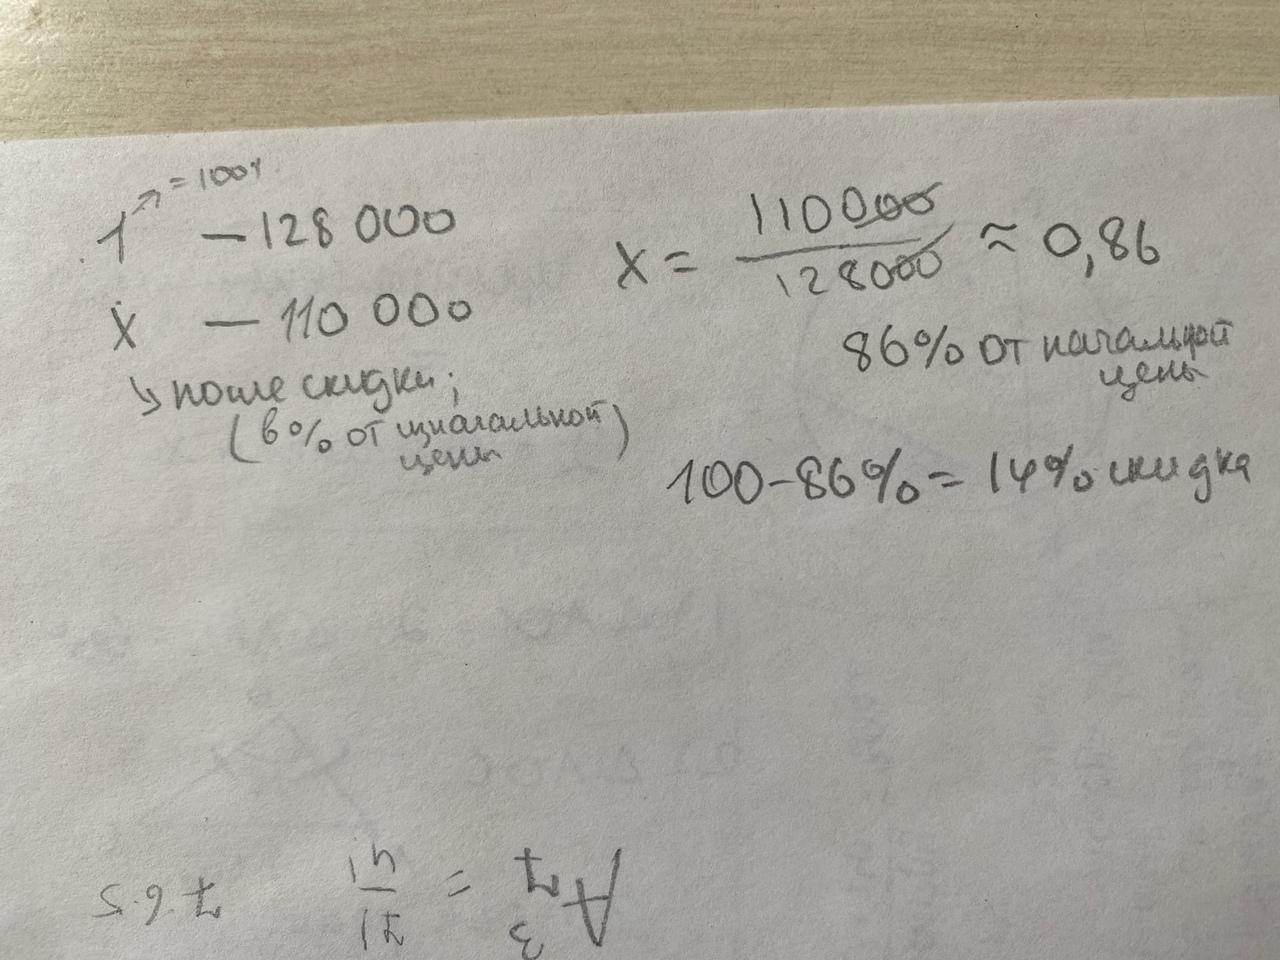 = 100%
1 — 128 000
x — 110 000
↘ после скидки;
(в % от изначальной
цены)
x = 110000/128000 ≈ 0,86
86% от начальной
цены
100-86% = 14% скидка
A₇³ = 7!/4! 7·6·5